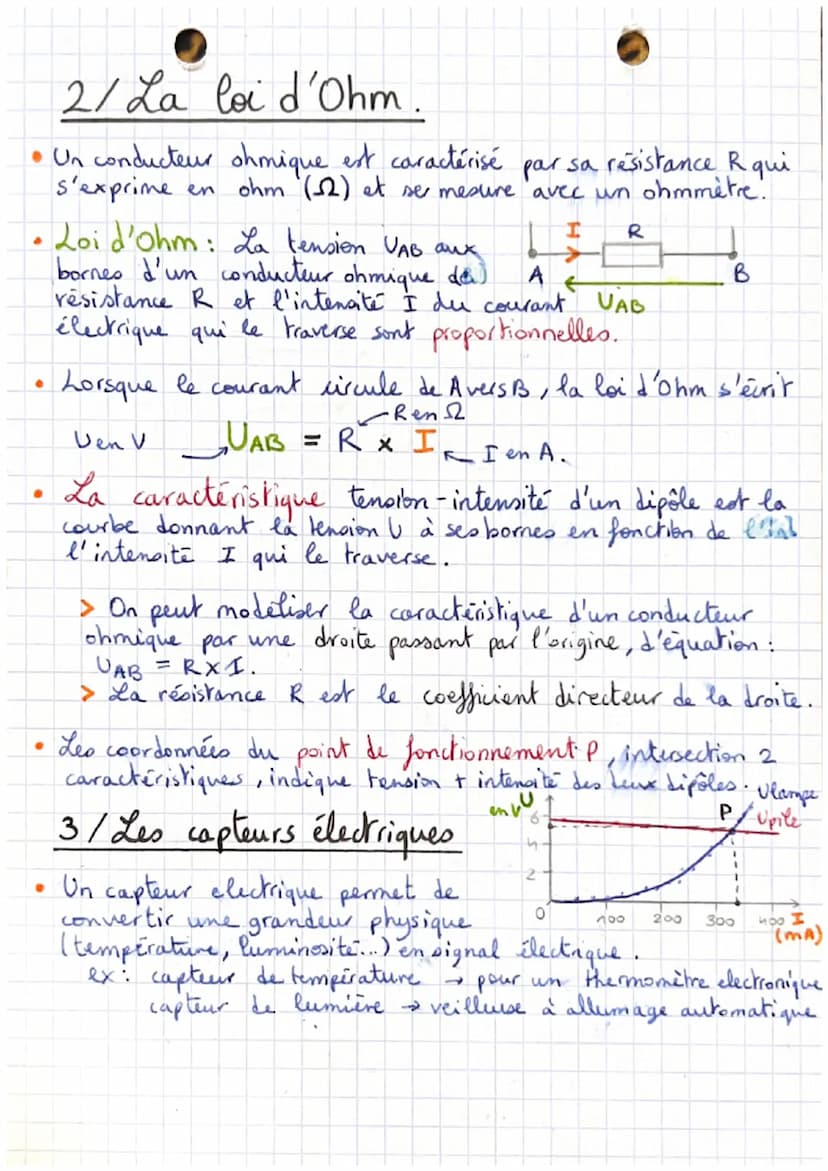 2/ La loi d'Ohm.
• Un conducteur ohmique est caractérisé par sa résistance R qui
s'exprime en ohm (Ω) et se mesure avec un ohmmètre.
• Loi d'Ohm : La tension UAB aux
bornes d'un conducteur ohmique de
résistance R et l'intensité I du courant
électrique qui le traverse sont proportionnelles.
I R
A B
UAB
• Lorsque le courant circule de A vers B, la loi d'Ohm s'écrit
R en Ω
U en V UAB = R x I I en A.
• La caractéristique tension-intensité d'un dipôle est la
courbe donnant la tension U à ses bornes en fonction de
l'intensité I qui le traverse.
> On peut modéliser la caractéristique d'un conducteur
ohmique par une droite passant par l'origine, d'équation :
UAB = R x I.
> La résistance R est le coefficient directeur de la droite.
• Les coordonnées du point de fonctionnement P, intersection 2
caractéristiques, indique tension + intensité des deux dipôles.
3/ Les capteurs électriques
en V U
6
4
2
0 100 200 300 400 I
(mA)
P
Ulampe
Upile
• Un capteur electrique permet de
convertir une grandeur physique
(température, luminosité...) en signal électrique.
ex : capteur de température → pour un thermomètre electronique
capteur de lumière → veilleuse à allumage automatique